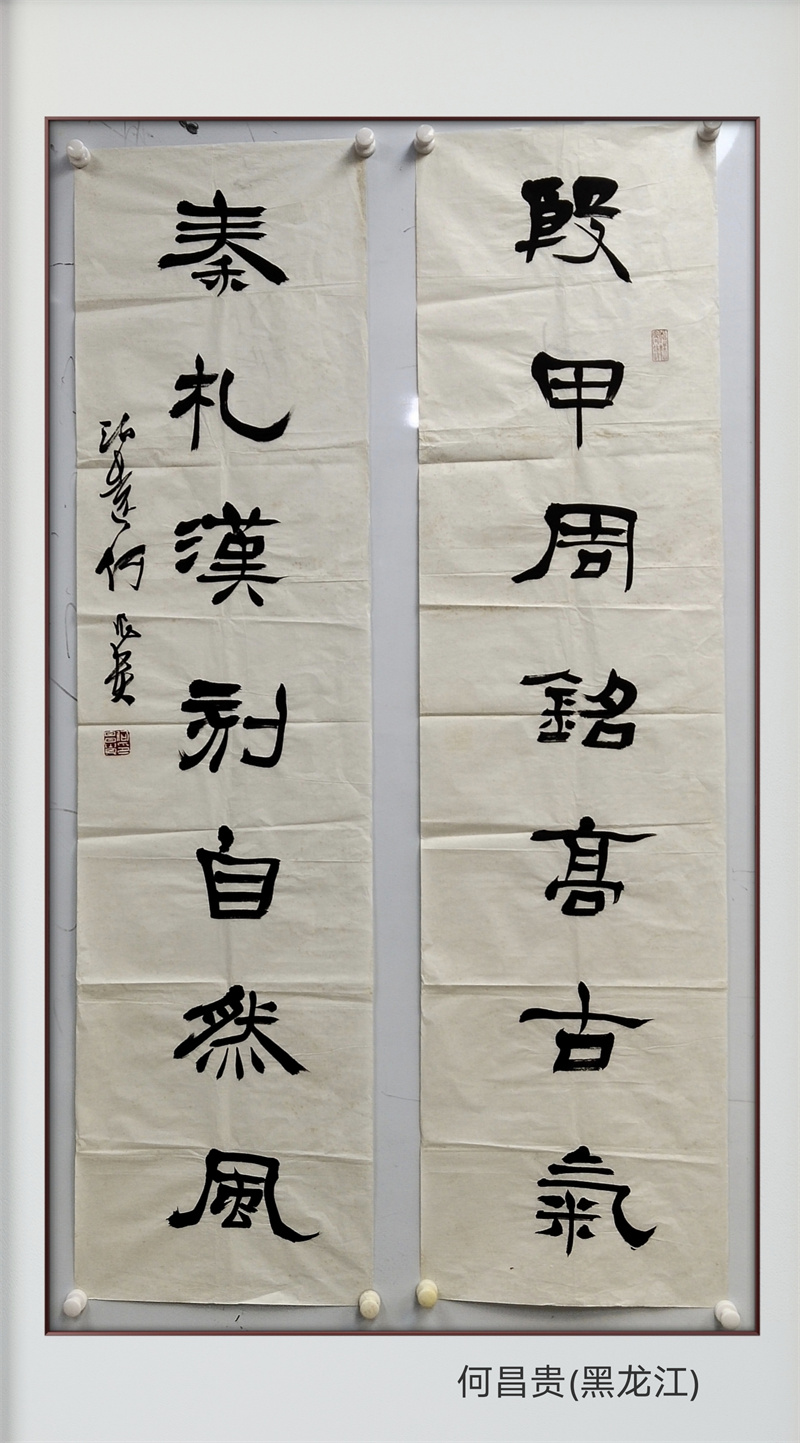 殷甲周銘高古氣
秦札漢刻自然風
何昌贵
何昌贵(黑龙江)